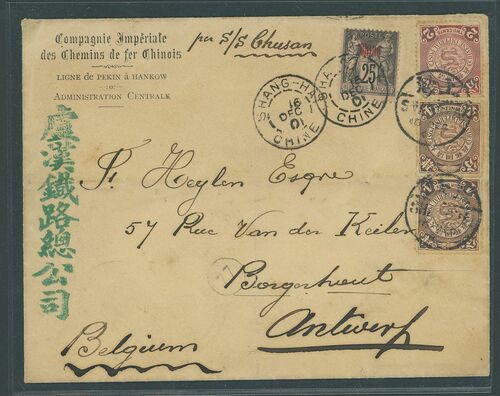 Compagnie Impériale
des Chemins de fer Chinois
LIGNE DE PEKIN À HANKOW
ADMINISTRATION CENTRALE
per S/S Chusan
25
SHANG-HAI
16
DEC
01
CHINE
DEC
01
CHINE
盧漢鐵路總公司
F. Heylen Esqre
57 Rue Van der Keilen
Borgerhout
Antwerp
Belgium